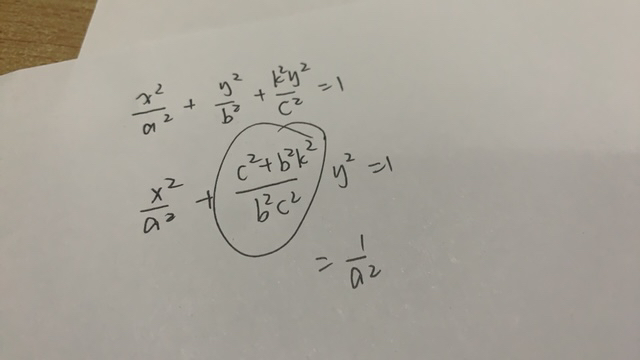 x²/a² + y²/b² + k²y²/c² = 1
x²/a² + (c²+b²k²)/(b²c²) y² = 1
= 1/a²